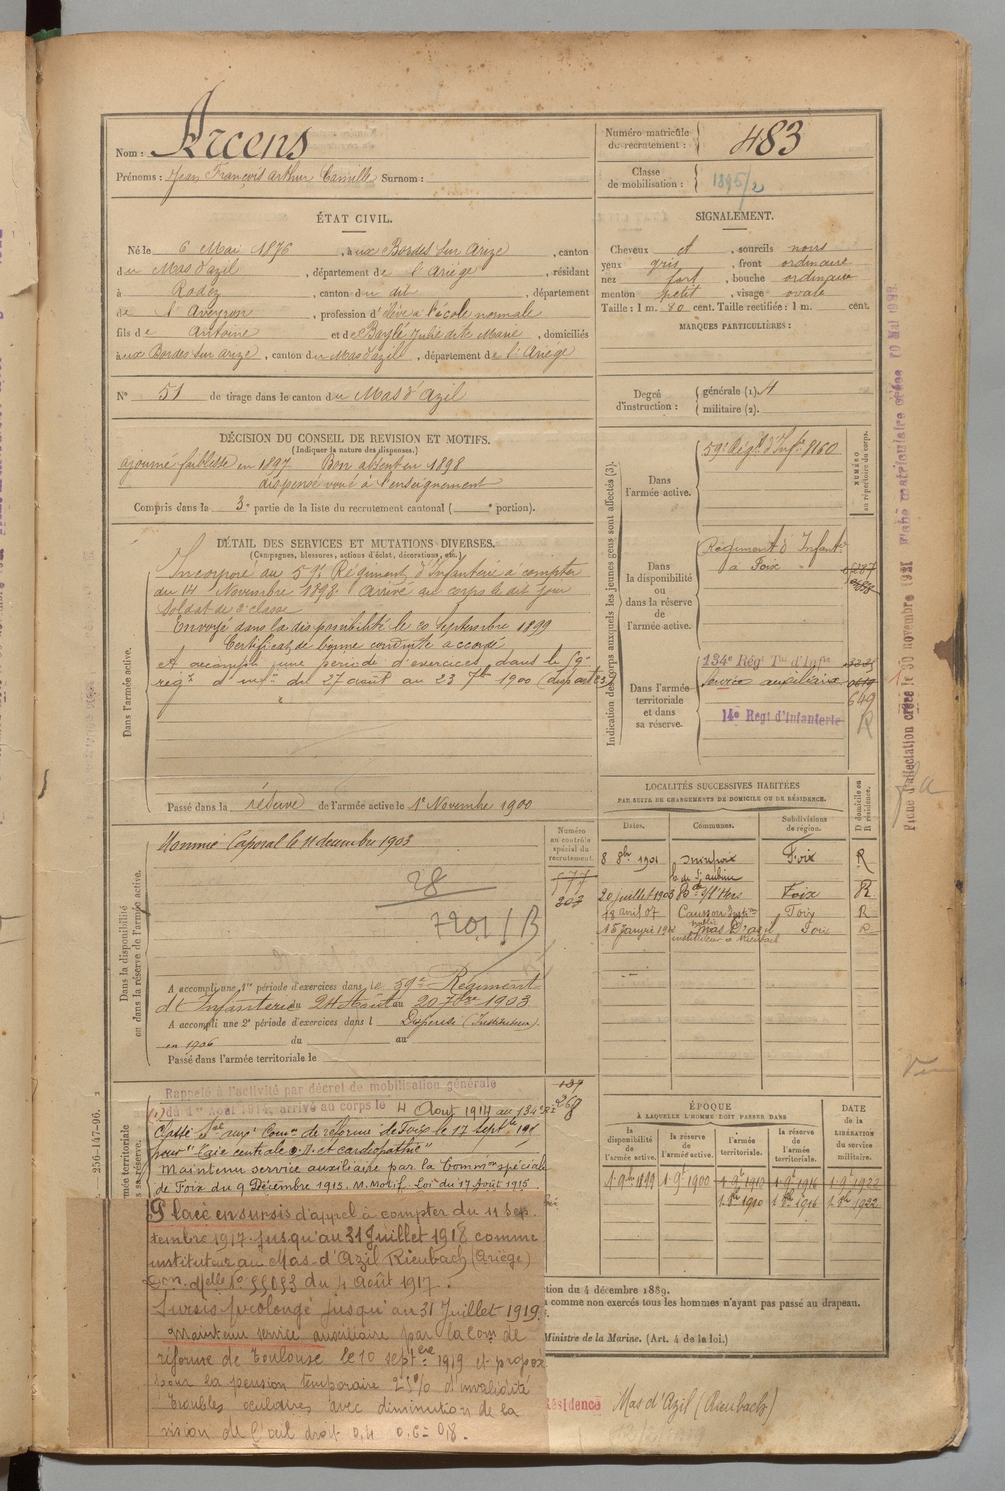 Nom : Arcens
Prénoms : Jean François Arthur Camille Surnom :
Numéro matricule du recrutement : 483
Classe de mobilisation : 1895/2
ÉTAT CIVIL.
Né le 6 Mai 1876, aux Bordes sur Arize, canton
du Mas d'azil, département de l'Ariège, résidant
à Rodez, canton du dit, département
de l'Aveyron, profession d'élève à l'école normale
fils de Antoine et de Baylé Julie dite Marie, domiciliés
aux Bordes sur arize, canton du Mas d'azil, département de l'Ariège
N° 51 de tirage dans le canton du Mas d'Azil
SIGNALEMENT.
Cheveux et, sourcils noirs
yeux gris, front ordinaire
nez fort, bouche ordinaire
menton petit, visage ovale
Taille : 1 m. 80 cent. Taille rectifiée : 1 m. cent.
MARQUES PARTICULIÈRES :
Degré d'instruction : générale (1). 4
militaire (2).
DÉCISION DU CONSEIL DE REVISION ET MOTIFS.
(Indiquer la nature des dispenses.)
ajourné faiblesse en 1897 Bon absent en 1898
dispensé voué à l'enseignement
Compris dans la 3e partie de la liste du recrutement cantonal ( e portion).
DÉTAIL DES SERVICES ET MUTATIONS DIVERSES.
(Campagnes, blessures, actions d'éclat, décorations, etc.)
Dans l'armée active.
Incorporé au 59e Régiment d'Infanterie à compter
du 14 Novembre 1898. Arrivé au corps le dit jour
Soldat de 2e classe
Envoyé dans la disponibilité le 20 septembre 1899
Certificat de bonne conduite accordé
A accompli une période d'exercices dans le 59e
régt d'infie du 27 août au 23 7bre 1900
Passé dans la réserve de l'armée active le 1er Novembre 1900
Indication des corps auxquels les jeunes gens sont affectés (3).
NUMÉRO au répertoire du corps.
Dans l'armée active.
59e Régt d'Infie 8160
Dans la disponibilité ou dans la réserve de l'armée active.
Régiment d'Infantie
à Foix
Dans l'armée territoriale et dans sa réserve.
134e Rég Tal d'Infie
Service auxiliaire
649
14e Régt d'Infanterie
R
LOCALITÉS SUCCESSIVES HABITÉES
PAR SUITE DE CHANGEMENTS DE DOMICILE OU DE RÉSIDENCE.
Dates. Communes. Subdivisions de région. D domicile ou R résidence.
8 8bre 1901 Mirepoix Foix R
20 juillet 1903 Foix R
18 avril 07 Caussou Foix R
15 janvier Mas d'azil Foix R
instituteur à Rieubach
Dans la disponibilité ou dans la réserve de l'armée active.
Numéro au contrôle spécial du recrutement.
Nommé Caporal le 11 décembre 1903
577
203
28
7201/B
A accompli une 1re période d'exercices dans le 59e Régiment
d'Infanterie du 24 Août au 20 7bre 1903
A accompli une 2e période d'exercices dans l Dispensé (Instituteur)
en 1906 du au
Passé dans l'armée territoriale le
Rappelé à l'activité par décret de mobilisation générale
du 1er Août 1914, arrivé au corps le 4 Août 1914 au 134e RI
268
Classé Sce auxre Comon de réforme de Foix le 17 septbre
pour "Taie centrale O.D. et cardiopathie"
Maintenu service auxiliaire par la Common spéciale
de Foix du 9 Décembre 1915. M. Motif. Loi du 17 Août 1915
Placé en sursis d'appel à compter du 11 Sep.
tembre 1917 jusqu'au 31 Juillet 1918 comme
instituteur au Mas-d'Azil Rieubach (Ariège)
Don Mlle No 55093 du 4 Août 1917.
Sursis prolongé jusqu'au 31 Juillet 1919.
Maintenu service auxiliaire par la Com de
réforme de Toulouse le 10 septbre 1919 et proposé
pour la pension temporaire 25% d'invalidité
troubles oculaires avec diminution de la
vision de l'œil droit 0,4 0,6 = 0,8.
ÉPOQUE
À LAQUELLE L'HOMME DOIT PASSER DANS
DATE de la LIBÉRATION du service militaire.
la disponibilité de l'armée active. la réserve de l'armée active. l'armée territoriale. la réserve de l'armée territoriale.
1 9bre 1899 1 9e 1900 1 9e 1910 1 9e 1916 1 9e 1922
1. 8bre 1910 1. 8bre 1916 1. 8bre 1922
ction du 4 décembre 1889.
comme non exercés tous les hommes n'ayant pas passé au drapeau.
Ministre de la Marine. (Art. 4 de la loi.)
Résidence Mas d'Azil (Rieubach)
256-147-96.
Fiche d'affectation créée le 30 novembre 1921 Fiche matriculaire créée 10 Mai 1922